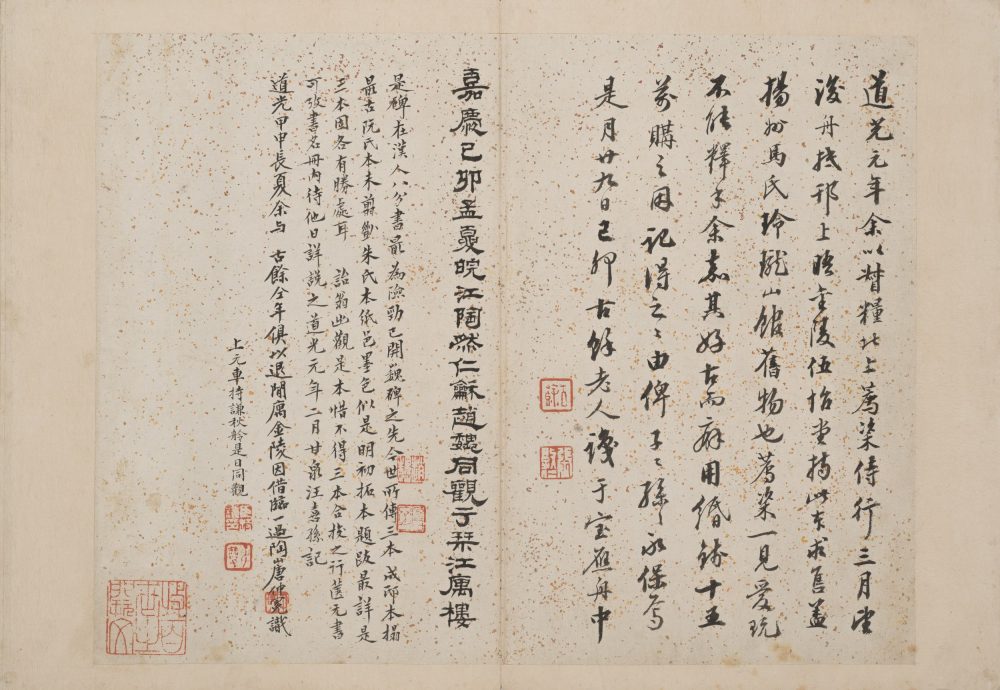 道光元年余以督糧北上薦染侍行三月望
後舟抵邗上晤金陵伍詒堂持此本求售盖
揚州馬氏玲瓏山館舊物也薦染一見愛玩
不能釋手余嘉其好古而癖用緡錢十五
萬購之因記得之之由俾子子孫永保焉
是月廿九日己卯古餘老人識于宝應舟中
嘉慶己卯孟夏皖江陶然仁龢趙魏同觀于栞江寓樓
是碑在漢人八分書最為險勁已開魏碑之先今世所傳三本成邸本搨
最古阮氏本未翦割朱氏本紙色墨色似是明初拓本題跋最詳是
三本固各有勝處耳 詒翁出觀是本惜不得三本合校之行篋无書
可攷書名冊內待他日詳說之道光元年二月甘泉汪喜孫記
道光甲申長夏余与 古餘仝年俱以退閒寓金陵因借臨一過陶山唐仲冕識
上元車持謙秋舲是日同觀